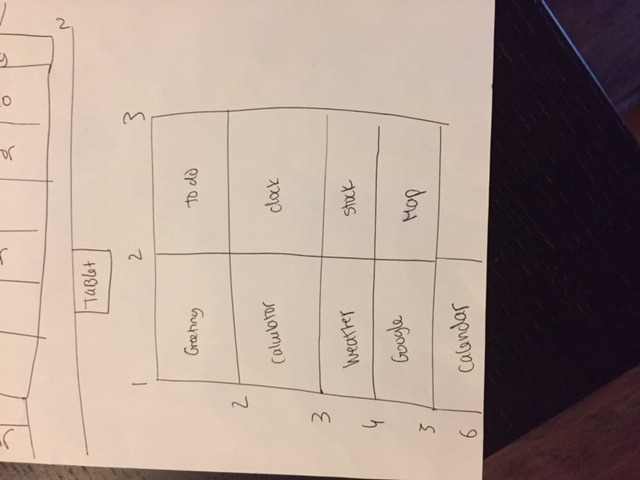 Tablet
1 2 3
Greeting To do
2
Calculator clock
3
Weather Stock
4
Google Map
5
6 Calendar